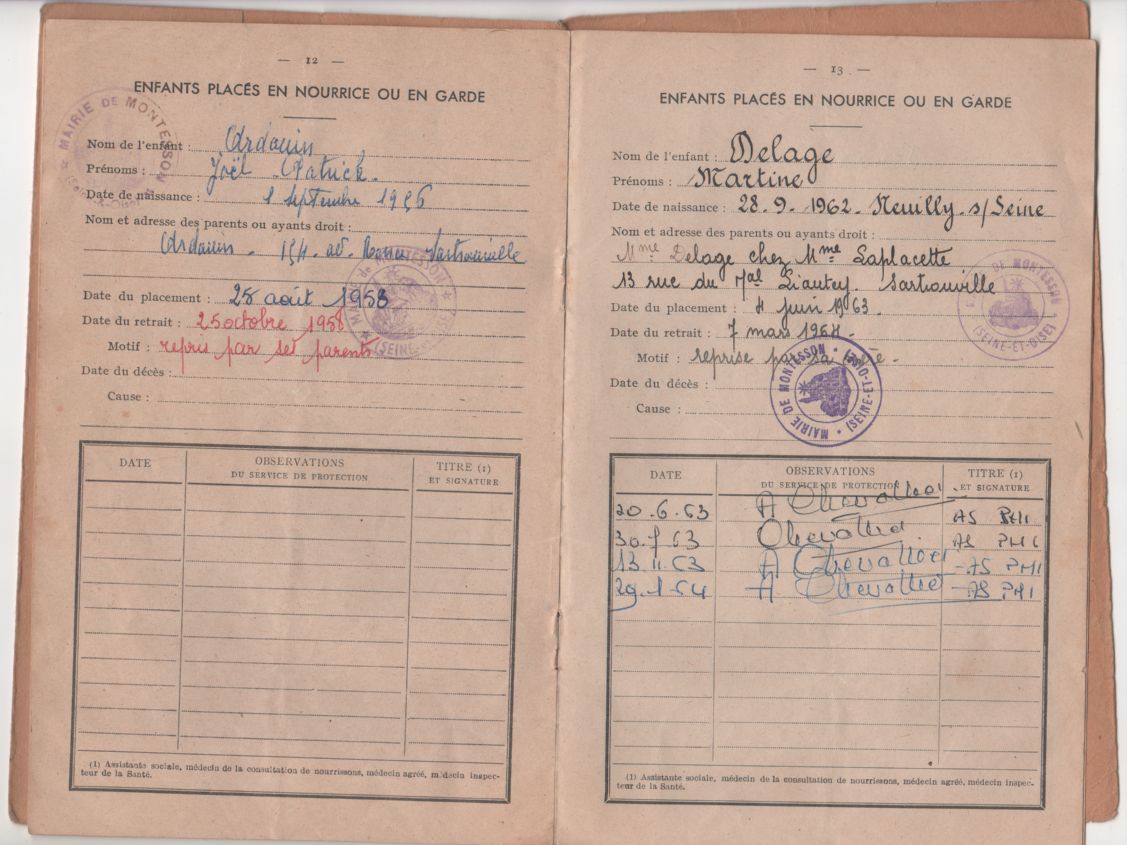 — 12 —
ENFANTS PLACÉS EN NOURRICE OU EN GARDE
MAIRIE DE MONTESSON
Nom de l'enfant : Ardouin
Prénoms : Joël Patrick.
Date de naissance : 1 septembre 1956
Nom et adresse des parents ou ayants droit :
Ardouin - 154. av. Sartrouville
Date du placement : 28 août 1958
Date du retrait : 25 octobre 1958
Motif : repris par ses parents
Date du décès :
Cause :
MAIRIE de MONTESSON (SEINE-
DATE OBSERVATIONS DU SERVICE DE PROTECTION TITRE (1) ET SIGNATURE
(1) Assistante sociale, médecin de la consultation de nourrissons, médecin agréé, médecin inspec-
teur de la Santé.
— 13 —
ENFANTS PLACÉS EN NOURRICE OU EN GARDE
Nom de l'enfant : Delage
Prénoms : Martine
Date de naissance : 28.9.1962. Neuilly s/Seine
Nom et adresse des parents ou ayants droit :
Mme Delage chez Mme Laplacette
13 rue du Mal Liautey. Sartrouville
Date du placement : 4 juin 1963.
Date du retrait : 7 mars 1964.
Motif : reprise par sa
Date du décès :
Cause :
DE MONTESSON (SEINE-ET-OISE)
MAIRIE DE MONTESSON (SEINE-ET-OISE)
DATE OBSERVATIONS DU SERVICE DE PROTECTION TITRE (1) ET SIGNATURE
20.6.63 A Chevallier AS PMI
63 Chevallier AS PMI
13.11.63 A Chevallier - AS PMI
29.1.64 A Chevallier - AS PMI
(1) Assistante sociale, médecin de la consultation de nourrissons, médecin agréé, médecin inspec-
teur de la Santé.